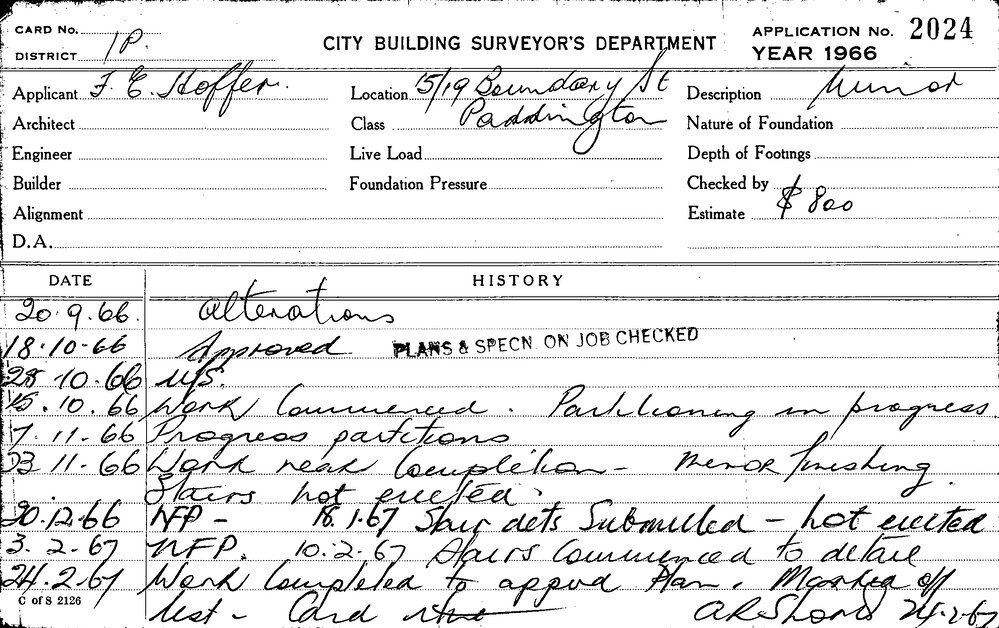 CARD No.
DISTRICT 1P.
CITY BUILDING SURVEYOR'S DEPARTMENT
APPLICATION No. 2024
YEAR 1966
Applicant F. E. Hoffer.
Location 15/19 Boundary St
Paddington
Description Minor
Architect
Class
Nature of Foundation
Engineer
Live Load
Depth of Footings
Builder
Foundation Pressure
Checked by
Alignment
Estimate $800
D.A.
DATE HISTORY
20.9.66. Alterations
18.10.66 Approved PLANS & SPECN. ON JOB CHECKED
28.10.66 N/S.
15.10.66 Work Commenced. Partitioning in progress.
7.11.66 Progress partitions
23.11.66 Work near Completion - minor finishing.
Stairs not erected.
20.12.66 NFP - 18.1.67 Stair dets Submitted - not erected
3.2.67 NFP. 10.2.67 Stairs Commenced to detail
24.2.67 Work Completed to appvd Plan. Marked off
list - Card 24.2.67
C of S 2126